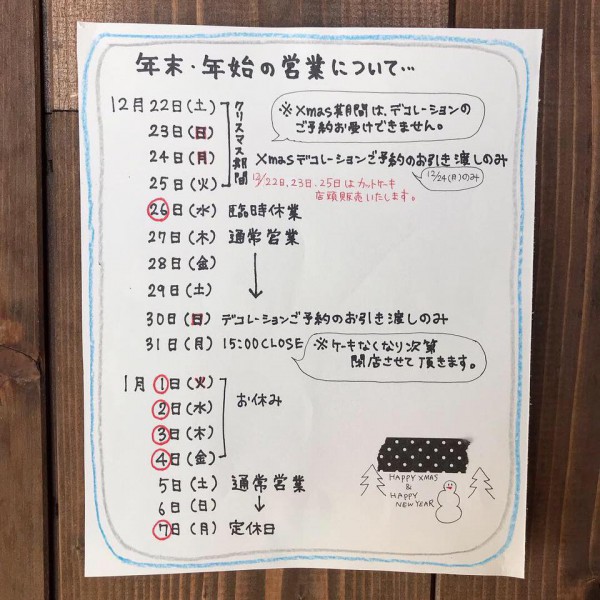 年末・年始の営業について…
12月22日(土)
23日(日)
24日(月)
25日(火)
クリスマス期間
※Xmas期間は、デコレーションの
ご予約お受けできません。
Xmasデコレーションご予約のお引き渡しのみ
12/24(月)のみ
12/22日、23日、25日はカットケーキ
店頭販売いたします。
26日(水) 臨時休業
27日(木) 通常営業
28日(金)
29日(土)
30日(日) デコレーションご予約のお引き渡しのみ
31日(月) 15:00CLOSE
※ケーキなくなり次第
閉店させて頂きます。
1月1日(火)
2日(水)
3日(木)
4日(金)
お休み
5日(土) 通常営業
6日(日)
7日(月) 定休日
HAPPY XMAS
&
HAPPY
NEW YEAR